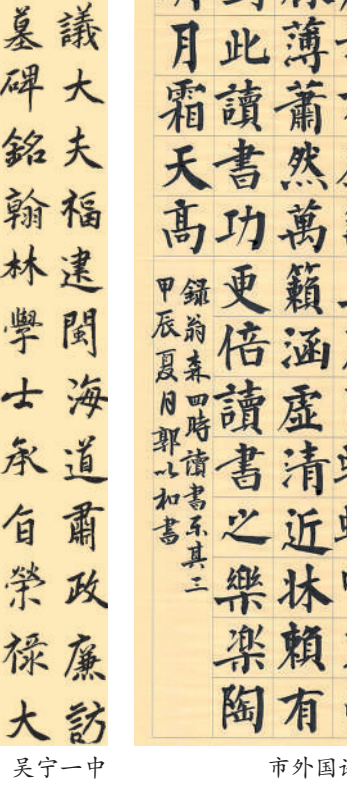 議大夫福建閩海道肅政廉訪
墓碑銘翰林學士承旨榮祿大
吴宁一中
薄蕭然萬籟涵虛清近牀賴有
此讀書功更倍讀書之樂楽陶
月霜天高
録翁森四時讀書乐其三
甲辰夏月郭以和書
市外国